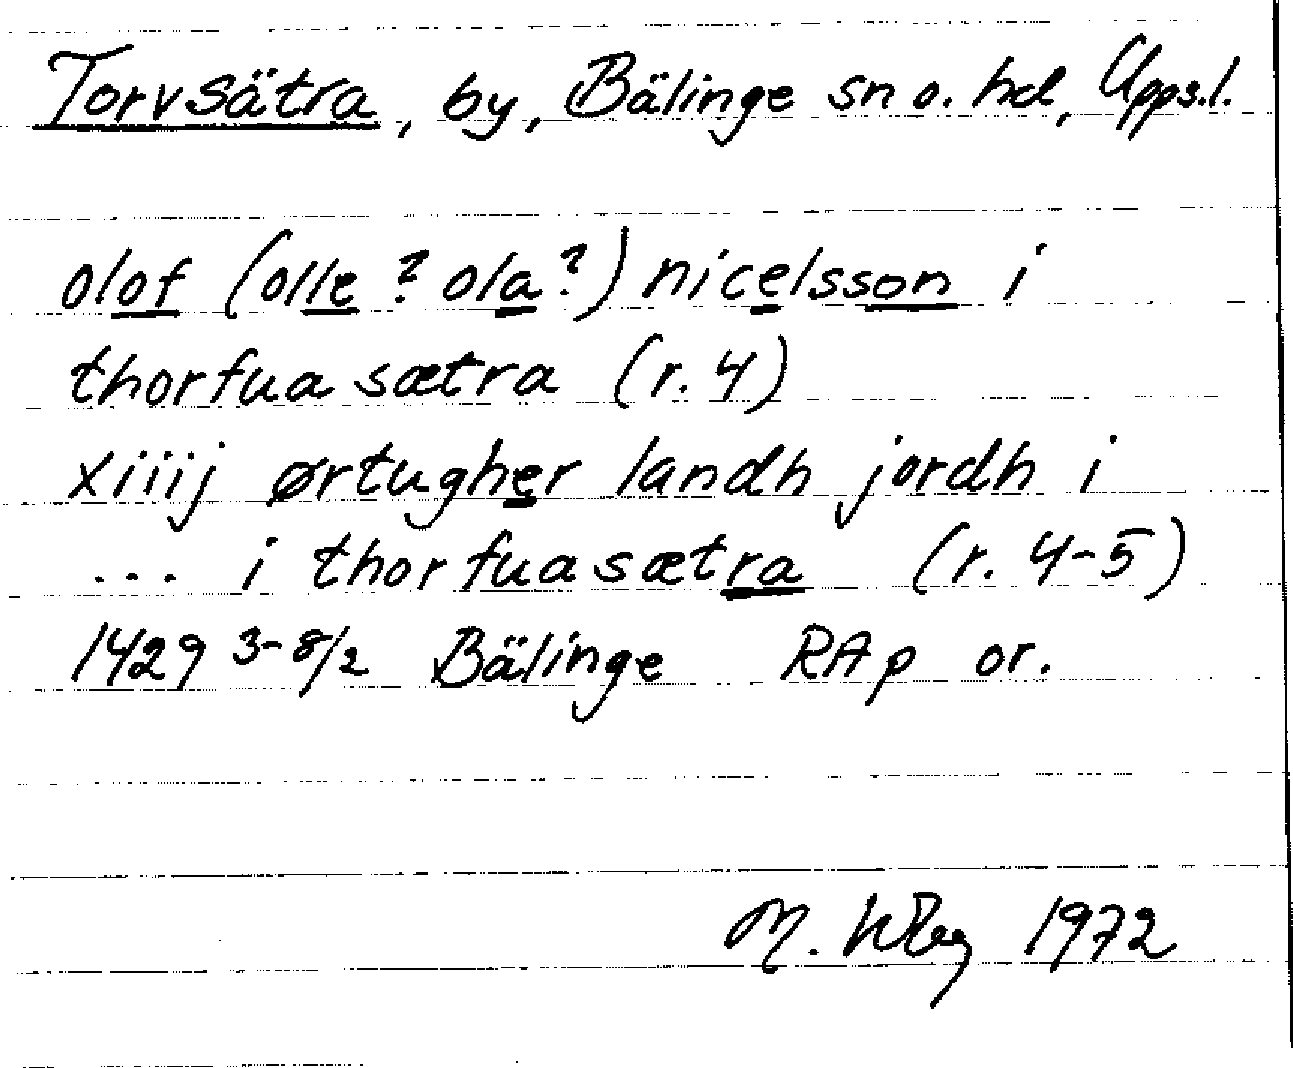 Torvsätra, by, Bälinge sn o. hd, Upps.l.
olof (olle? ola?) nicelsson i
thorfua sætra (r. 4)
xiiij ørtugher landh jordh i
... i thorfuasætra (r. 4-5)
1429 3-8/2 Bälinge RAp or.
M. 1972